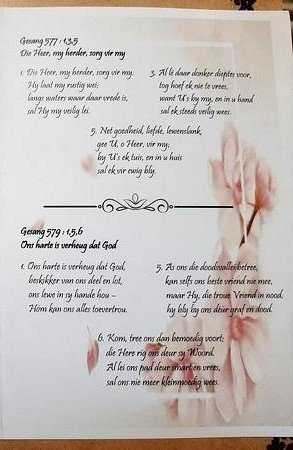 Gesang 577 : 1,3,5
Die Heer, my herder, sorg vir my
1. Die Heer, my herder, sorg vir my.
Hy laat my rustig wei;
langs waters waar daar vrede is,
sal Hy my veilig lei.
3. Al lê daar donker dieptes voor,
tog hoef ek nie te vrees,
want U's by my, en in u hand
sal ek steeds veilig wees.
5. Net goedheid, liefde, lewenslank,
gee U, o Heer, vir my;
by U's ek tuis, en in u huis
sal ek vir ewig bly.
Gesang 579 : 1,5,6
Ons harte is verheug dat God
1. Ons harte is verheug dat God,
beskikker van ons deel en lot,
ons lewe in sy hande hou –
Hom kan ons alles toevertrou.
5. As ons die doodsvallei betree,
kan selfs ons beste vriend nie mee,
maar Hy, die troue Vriend in nood,
hy bly by ons deur graf en dood.
6. Kom, tree ons dan bemoedig voort;
die Here rig ons deur sy Woord.
Al lei ons pad deur smart en vrees,
sal ons nie meer kleinmoedig wees.